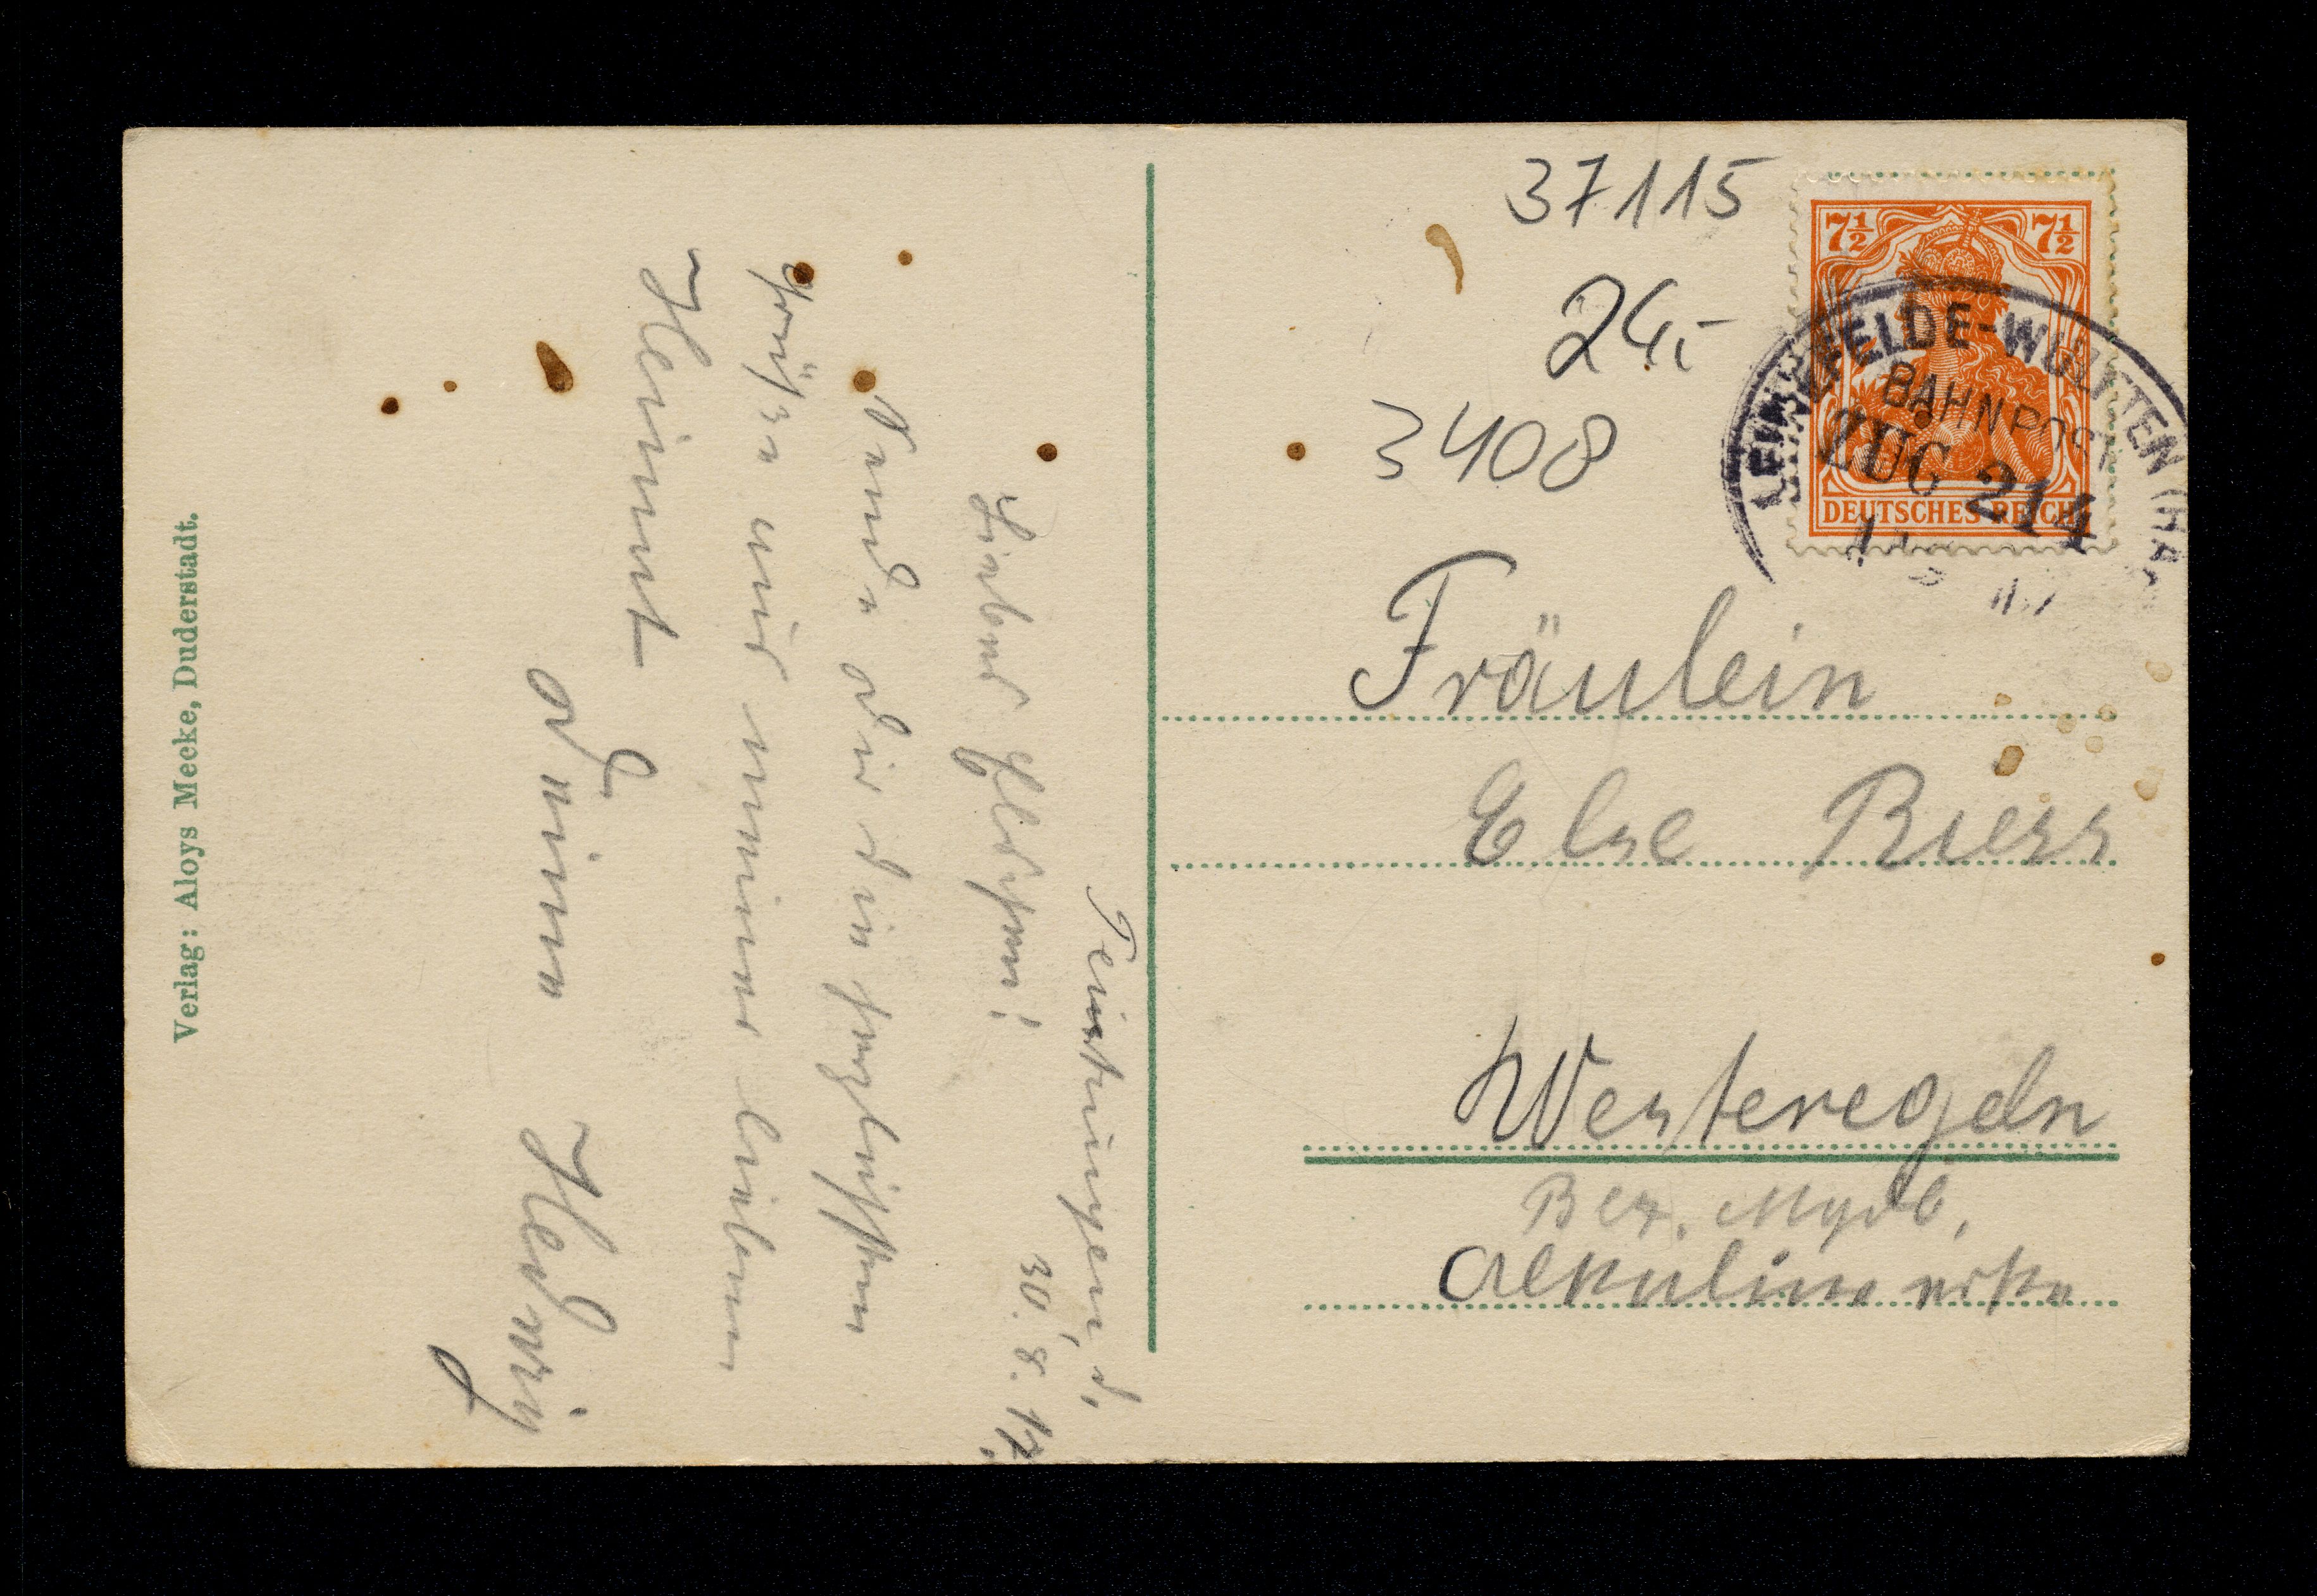 Verlag: Aloys Mecke, Duderstadt.
Teistungen, d,
30. 8. 17.
Liebes Elschen!
Sende dir die herzlichsten
Grüße aus meiner lieben
Heimat
Deine Hedwig
37115
24,-
3408
7½ 7½
DEUTSCHES REICH
LEINEFELDE-WULFTEN (HA
BAHNPOST
ZUG 214
Fräulein
Else Riess
Westeregeln
Bez. Magdb.